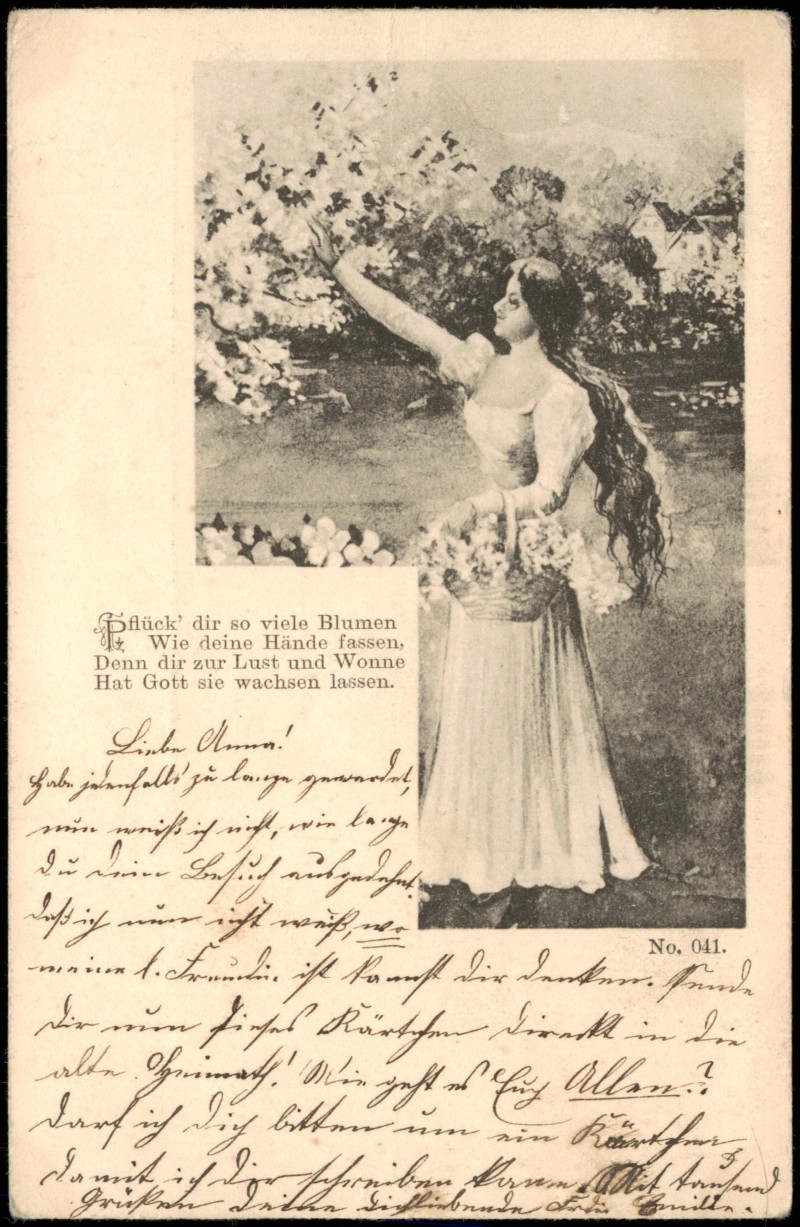 Pflück' dir so viele Blumen
Wie deine Hände fassen,
Denn dir zur Lust und Wonne
Hat Gott sie wachsen lassen.
Liebe Anna!
Habe jedenfalls zu lange gewartet,
nun weiß ich nicht, wie lange
du dein Besuch ausgedehnt
daß ich nun nicht weiß, wo
No. 041.
meine l. Freundin ist kannst dir denken. Sende
dir nun dieses Kärtchen direkt in die
alte Heimath! Wie geht es Euch Allen?
Darf ich dich bitten um ein Kärtchen
damit ich dir schreiben kann. Mit tausend
Grüßen deine dichliebende Emilie.